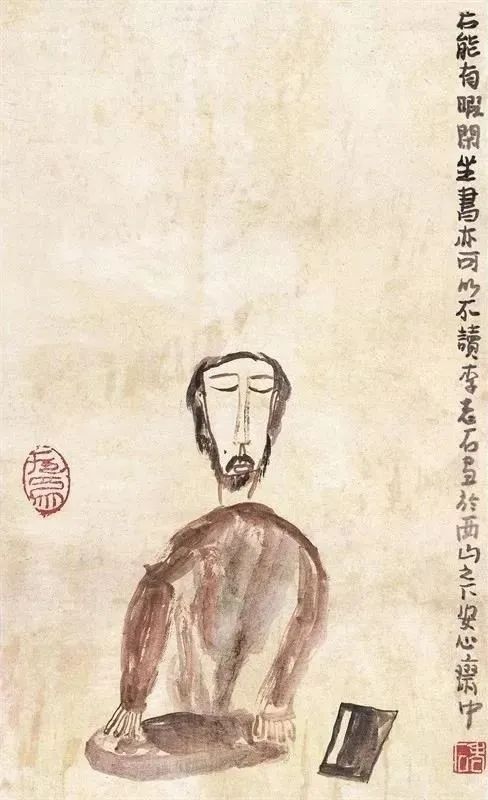 若能有暇閑坐書亦可以不讀李老石於西山之下安心齋中